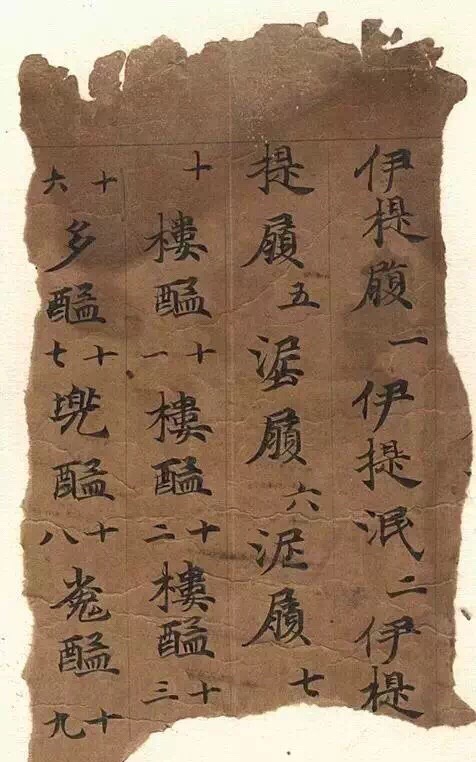 伊提履一伊提泯二伊提
提履五泥履六泥履七
十樓醯十一樓醯十二樓醯十三
十六多醯十七兜醯十八㝹醯十九